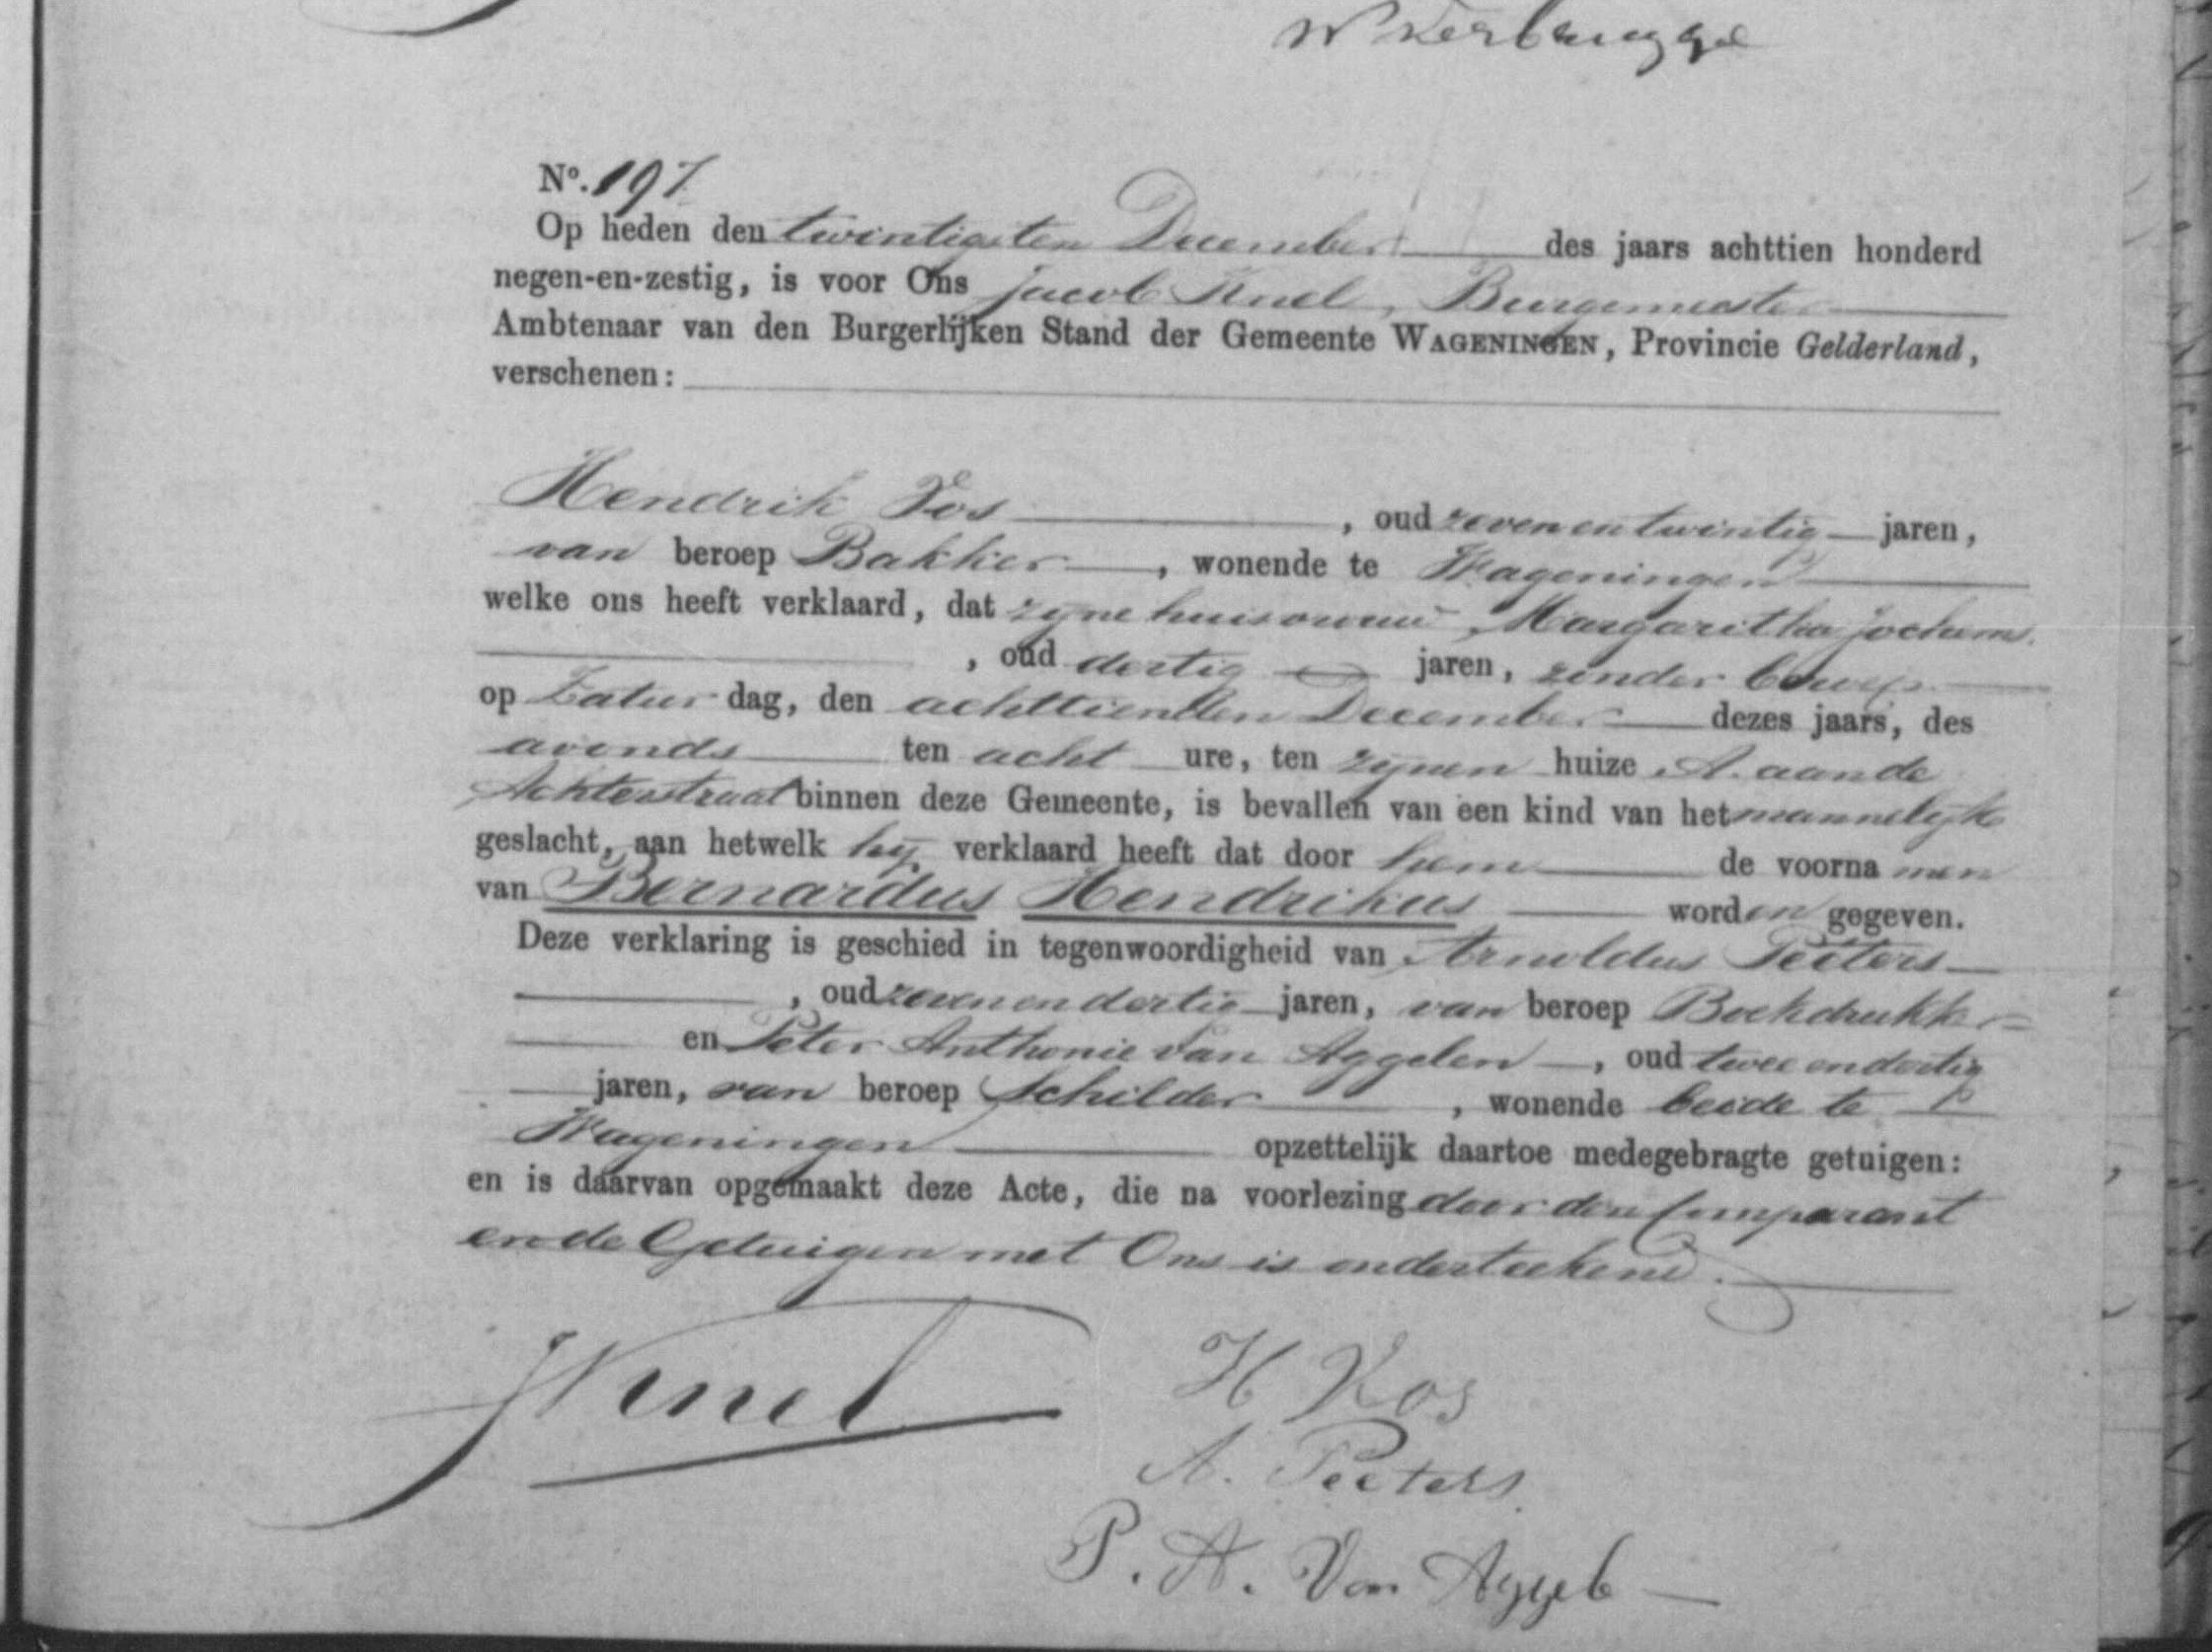 W Terbrugge
No. 197
Op heden den twintigsten December des jaars achttien honderd
negen-en-zestig, is voor Ons Jacob Knel, Burgemeester
Ambtenaar van den Burgerlijken Stand der Gemeente WAGENINGEN, Provincie Gelderland,
verschenen:
Hendrik Vos, oud zevenentwintig jaren,
van beroep Bakker, wonende te Wageningen
welke ons heeft verklaard, dat zijne huisvrouw Margaritha Jochems
, oud dertig jaren, zonder beroep
op Zaturdag, den achttienden December dezes jaars, des
avonds ten acht ure, ten zijnen huize A. aan de
Achterstraat binnen deze Gemeente, is bevallen van een kind van het mannelijk
geslacht, aan hetwelk hij verklaard heeft dat door hem de voornamen
van Bernardus Hendrikus worden gegeven.
Deze verklaring is geschied in tegenwoordigheid van Arnoldus Peeters
, oud zevenendertig jaren, van beroep Boekdrukker
en Peter Anthonie van Aggelen, oud tweeendertig
jaren, van beroep Schilder, wonende beide te
Wageningen opzettelijk daartoe medegebragte getuigen:
en is daarvan opgemaakt deze Acte, die na voorlezing door den Comparant
en de Getuigen met Ons is onderteekend.
JKnel
H Vos
A. Peeters
P. A. Van Aggele